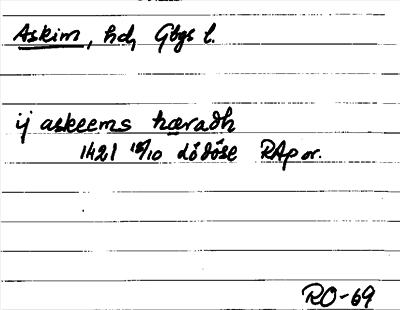 Askim, hd, Gbgs l.
ij askeems hæradh
1421 15/10 lödöse RAp or.
RO-69